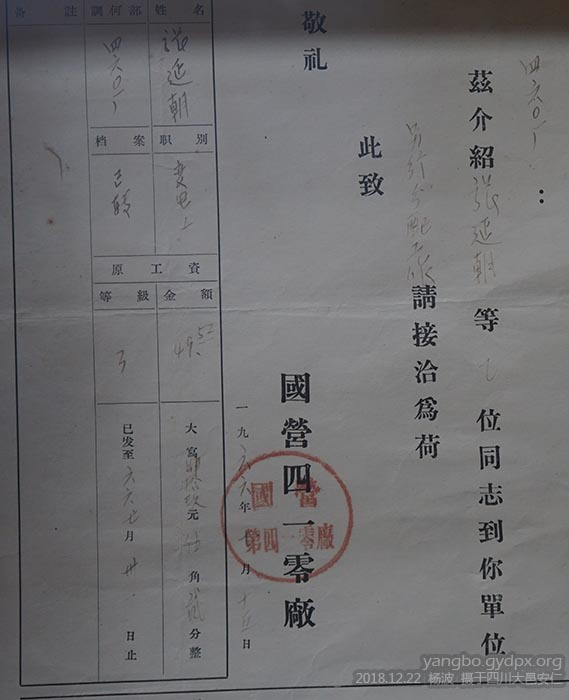 四六〇一：
茲介紹張延朝等乙位同志到你單位
另行分配工作請接洽爲荷
此致
敬礼
國營四一零廠
一九六六年七月十五日
國營
第四一零廠
姓名
張延朝
职別
变电工
調何部
四六〇一
档案
已转
原工資
金額
49.52
大寫肆拾玖元伍角貳分整
等級
3
已发至六六七月卅一日止
備註
yangbo.gydpx.org
2018.12.22 杨波 摄于四川大邑安仁